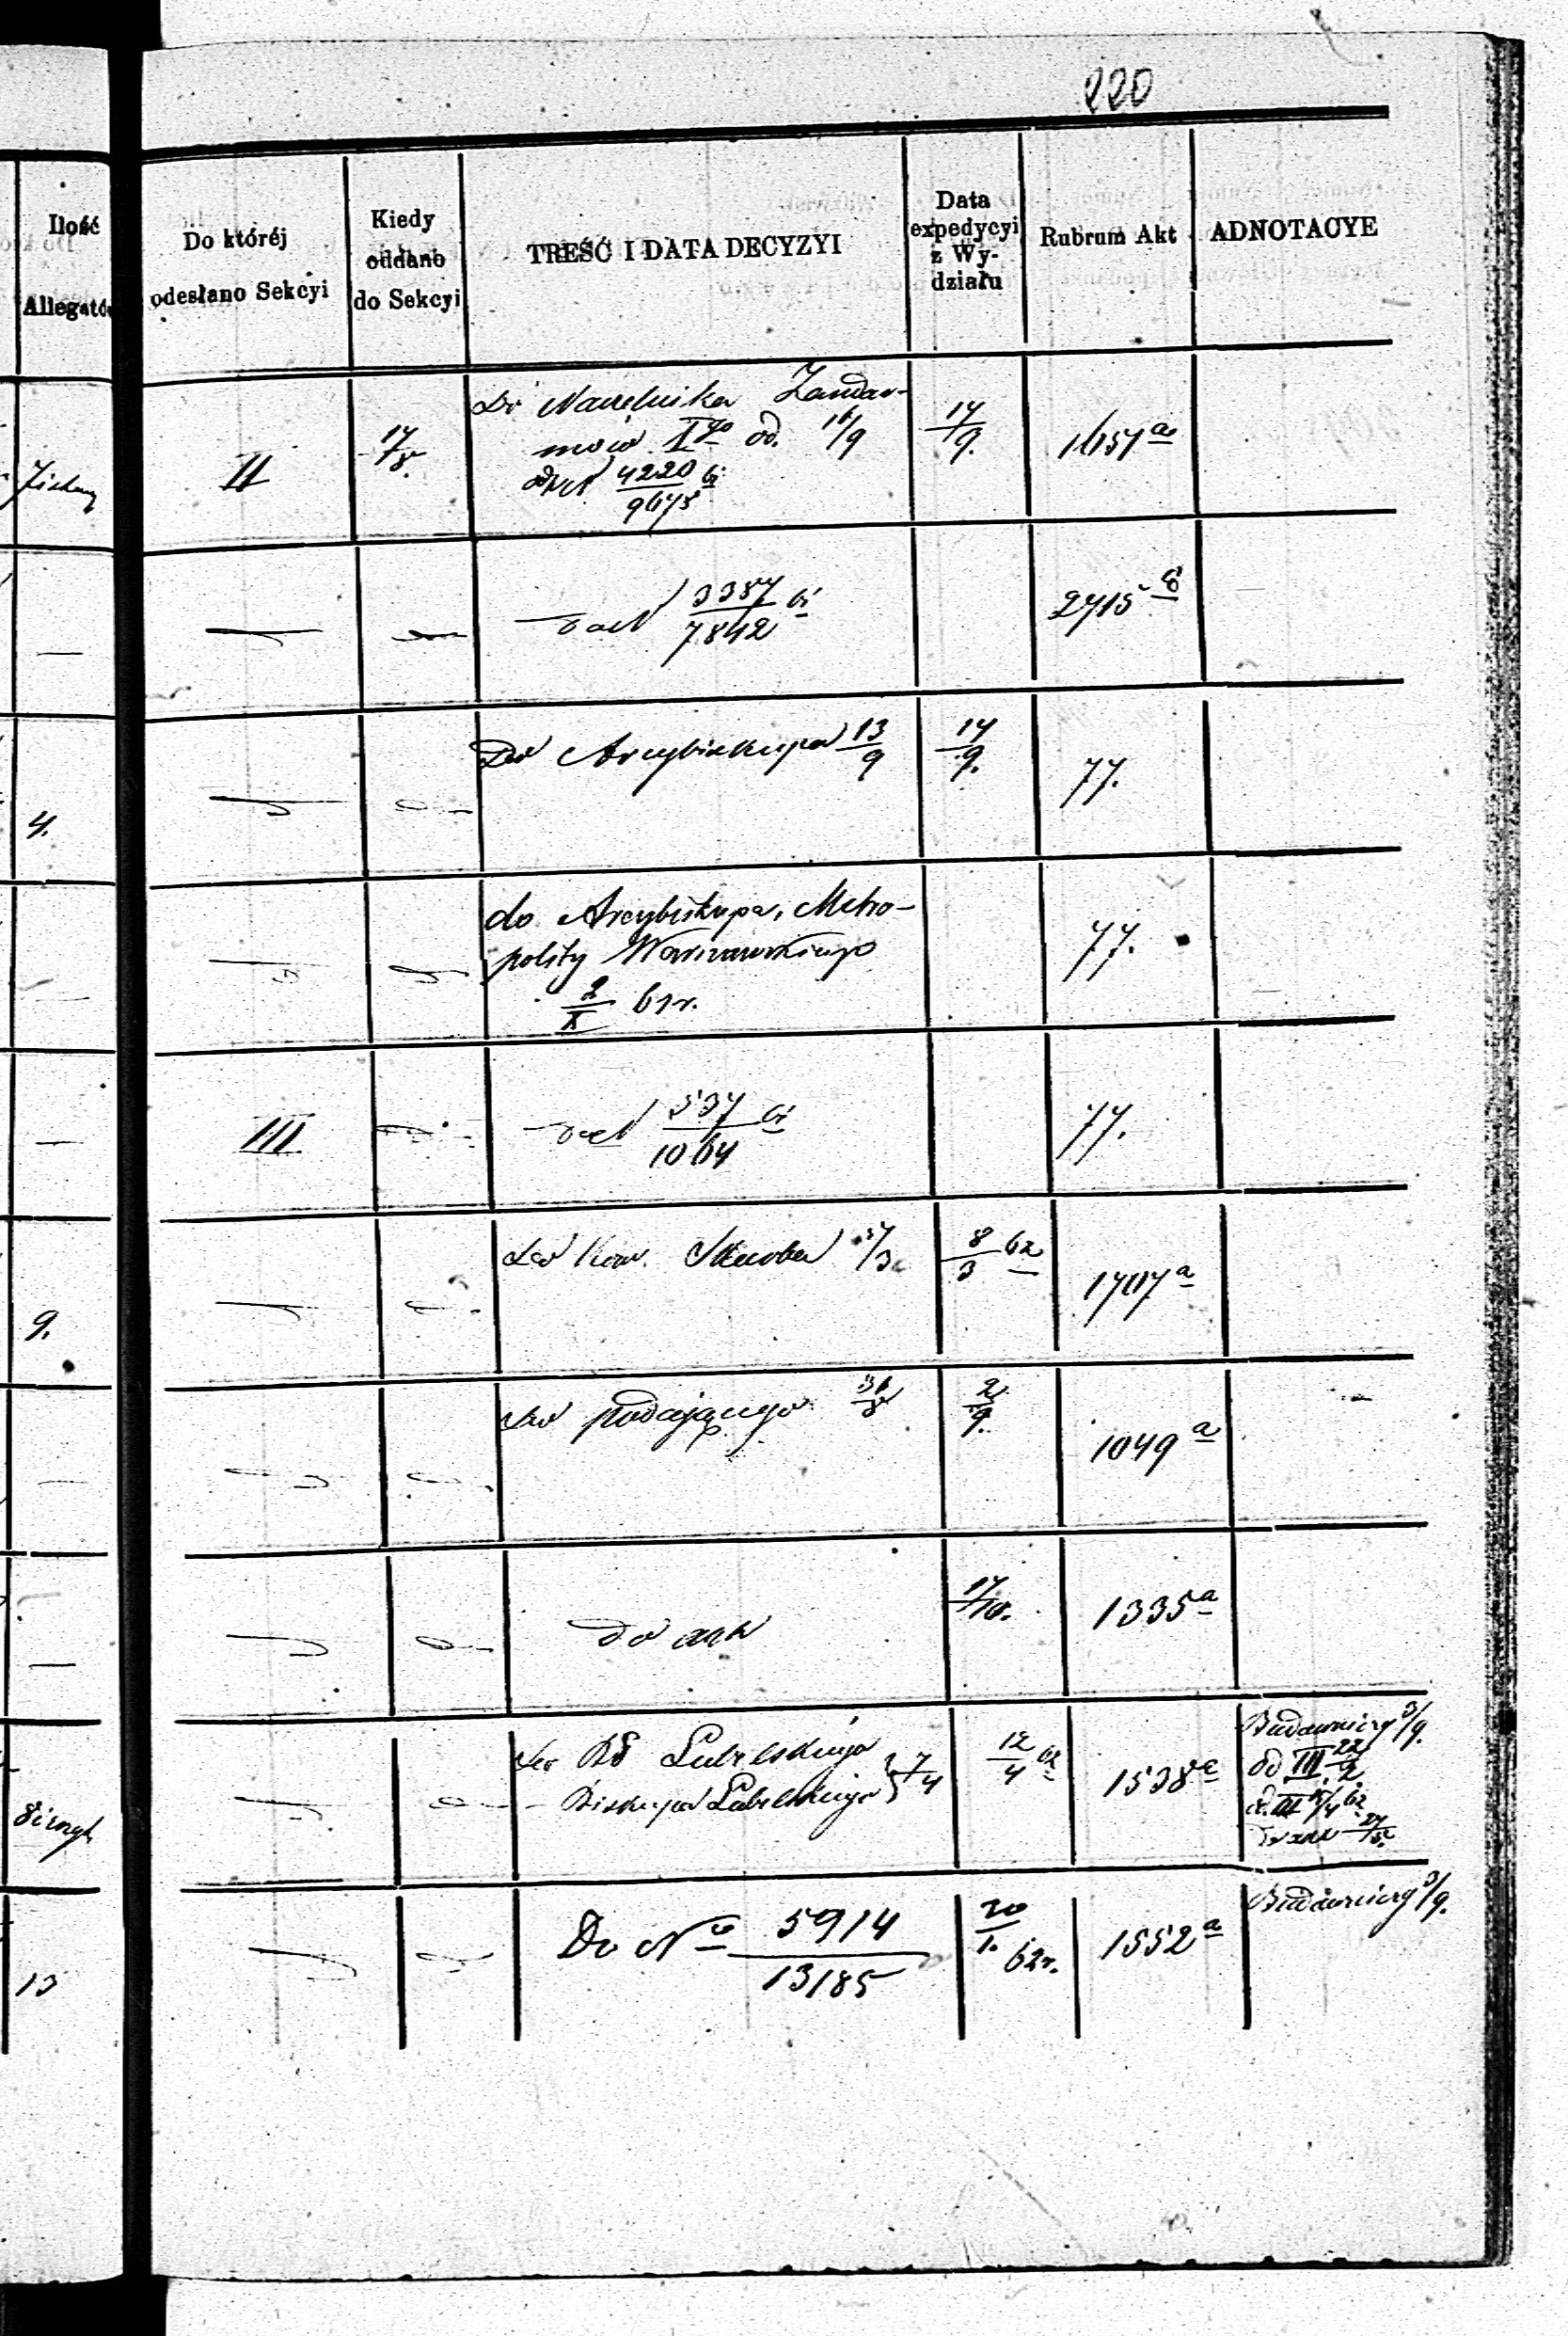 220
Ilość
Allegatów
Do której
odesłano Sekcyi
Kiedy
oddano
do Sekcyi
TREŚĆ I DATA DECYZYI
Data
expedycyi
z Wy-
działu
Rubrum Akt
ADNOTACYE
II
17/8.
Do Naczelnika Żandar-
Igo od. 16/9
4220/9675
17/9.
1657 a
3357/7842
2715
4.
Do Arcybiskupa 13/9
17/9.
77.
do Arcybiskupa, Metro-
polity Warszawskiego
2/X 61 r.
77.
III
537/1064
77.
9.
Do Kom. Skarbu /3
8/3 62
1707 a
Do podającego
2/9.
1049 a
do akt
17/10.
1335 a
Do RG Lubelskiego
Biskupa Lubelskiego } 7/4
12/4 62
1538 a
Budowniczy 3/9.
od III 22/2
13
Do No 5914/13185
20/1. 62 r.
1552 a
Budowniczy 3/9.